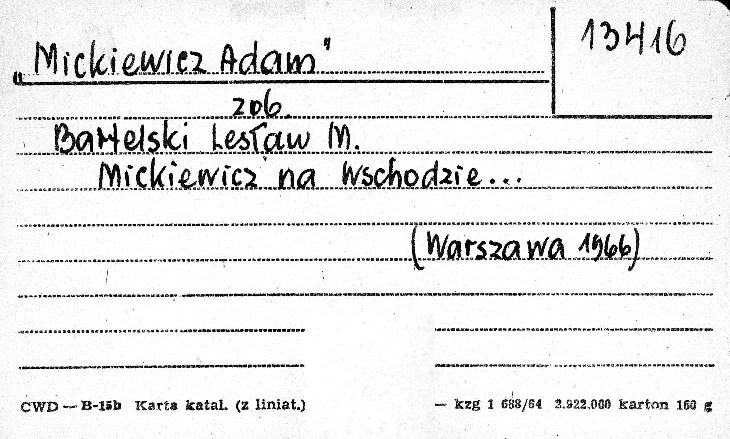 13416
„Mickiewicz Adam"
zob.
Bartelski Lesław M.
Mickiewicz na Wschodzie...
(Warszawa 1966)
CWD — B-15b Karta katal. (z liniat.) — kzg 1 688/64 2.922.000 karton 160 g